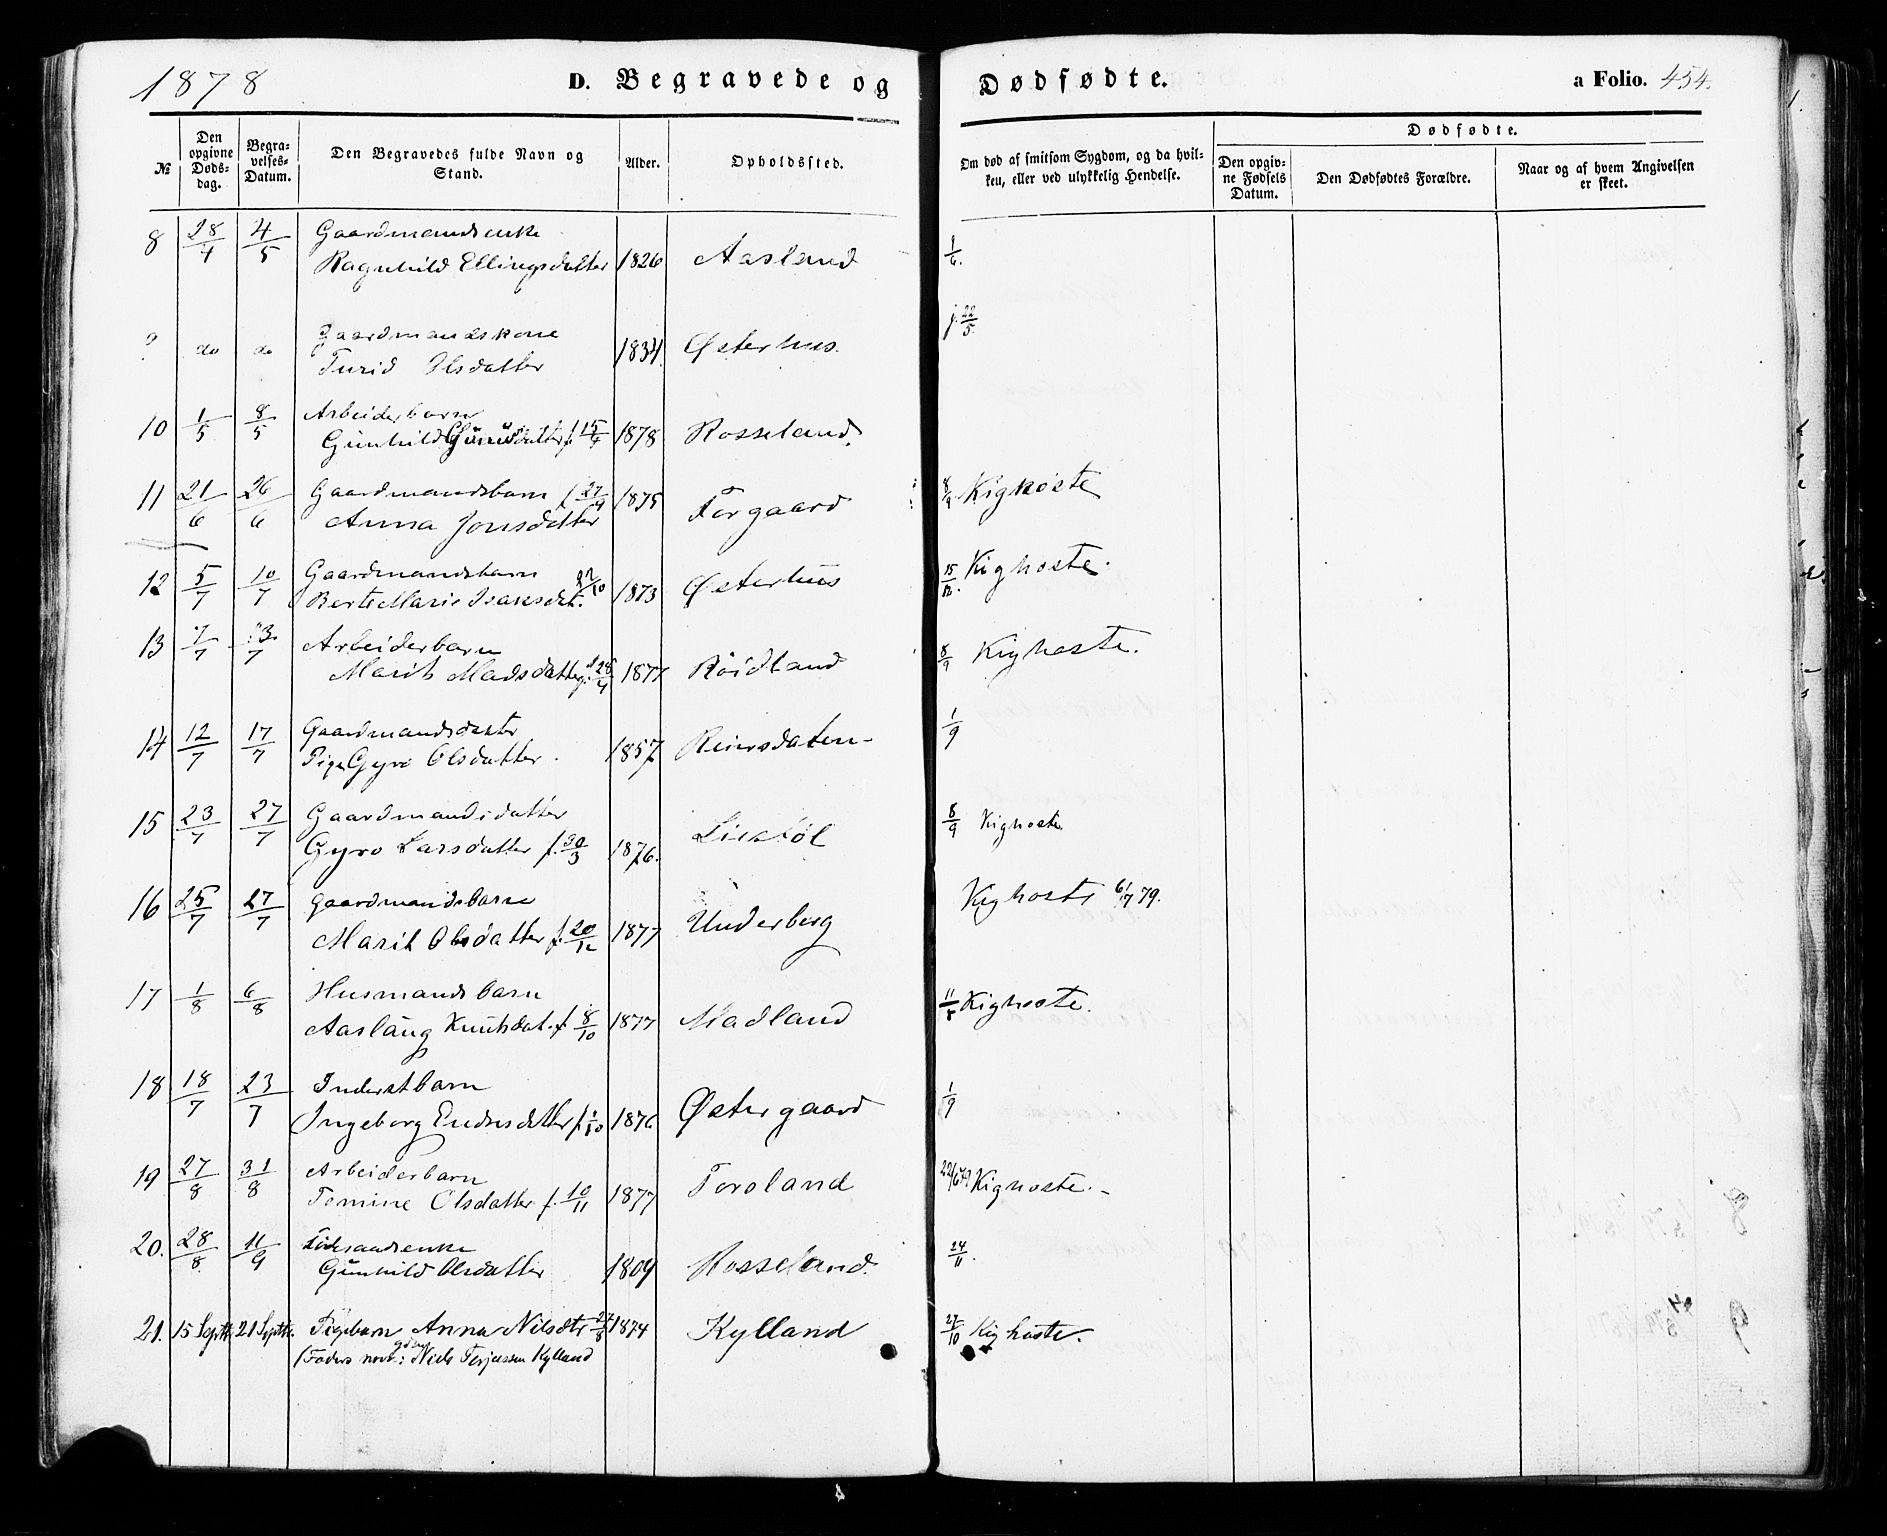 1878 D. Begravede og Dødfødte. a Folio. 454.
№ Den opgivne Døds-dag. Begra-velses-Datum. Den Begravedes fulde Navn og Stand. Alder. Opholdssted. Om død af smitsom Sygdom, og da hvil-ken, eller ved ulykkelig Hendelse. Dødfødte. Den opgiv-ne Fødsels Datum. Den Dødfødtes Forældre. Naar og af hvem Angivelsen er skeet.
8 28/4 4/5 Gaardmandsenke
Ragnhild Ellingsdatter 1826 Aasland
do do Gaardmandskone
Turid Olsdatter 1834 Østerhus. 22/5
10 1/5 8/5 Arbeiderbarn
Gunhild f. 15/4 1878 Rosseland.
11 21/6 26/6 Gaardmandsbarn f. 27/9 1875
Anna Jonsdatter Torgaard 8/9 Kighoste
12 5/7 10/7 Gaardmandsbarn
Berte Marie Isaksdat. 1873 Østerhus 15/12. Kighoste.
13 7/7 13/7 Arbeiderbarn
Marit Madsdatter 28/4 1877 Røidland 8/9 Kighoste.
14 12/7 17/7 Gaardmandsdatter
Pige Gyro Olsdatter. 1857 Reiersdalen- 1/9
15 23/7 27/7 Gaardmandsdatter
Gyro Larsdatter f. 30/3 1876. Liestøl 8/9 Kighoste
16 25/7 27/7 Gaardmandsbarn
Marit Olsdatter f. 20/12 1877 Underberg Kighoste 6/7 79.
17 1/8 6/8 Husmandsbarn
Aaslaug Knutsdat. f. 8/10 1877 Madland Kighoste.
18 18/7 23/7 Inderstbarn
Ingeborg Endresdatter 1876 Østergaard 1/9
19 27/8 31/8 Arbeiderbarn
Tomine Olsdatter f. 10/11 1877 Toroland 22/6 79 Kighoste.-
20. 28/8 11/9 Føderaadsenke
Gunhild Olsdatter 1809 Rosseland. 24/11.
21. 15 Septbr. 21 Septbr. Pigebarn Anna Nilsdtr 27/8 1874 Kylland 27/10 Kighoste.
(Faders navn: Gdbr. Niels Terjessen Kylland